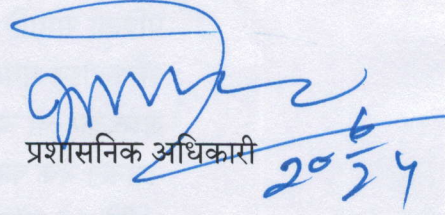 प्रशासनिक अधिकारी
20/6/24